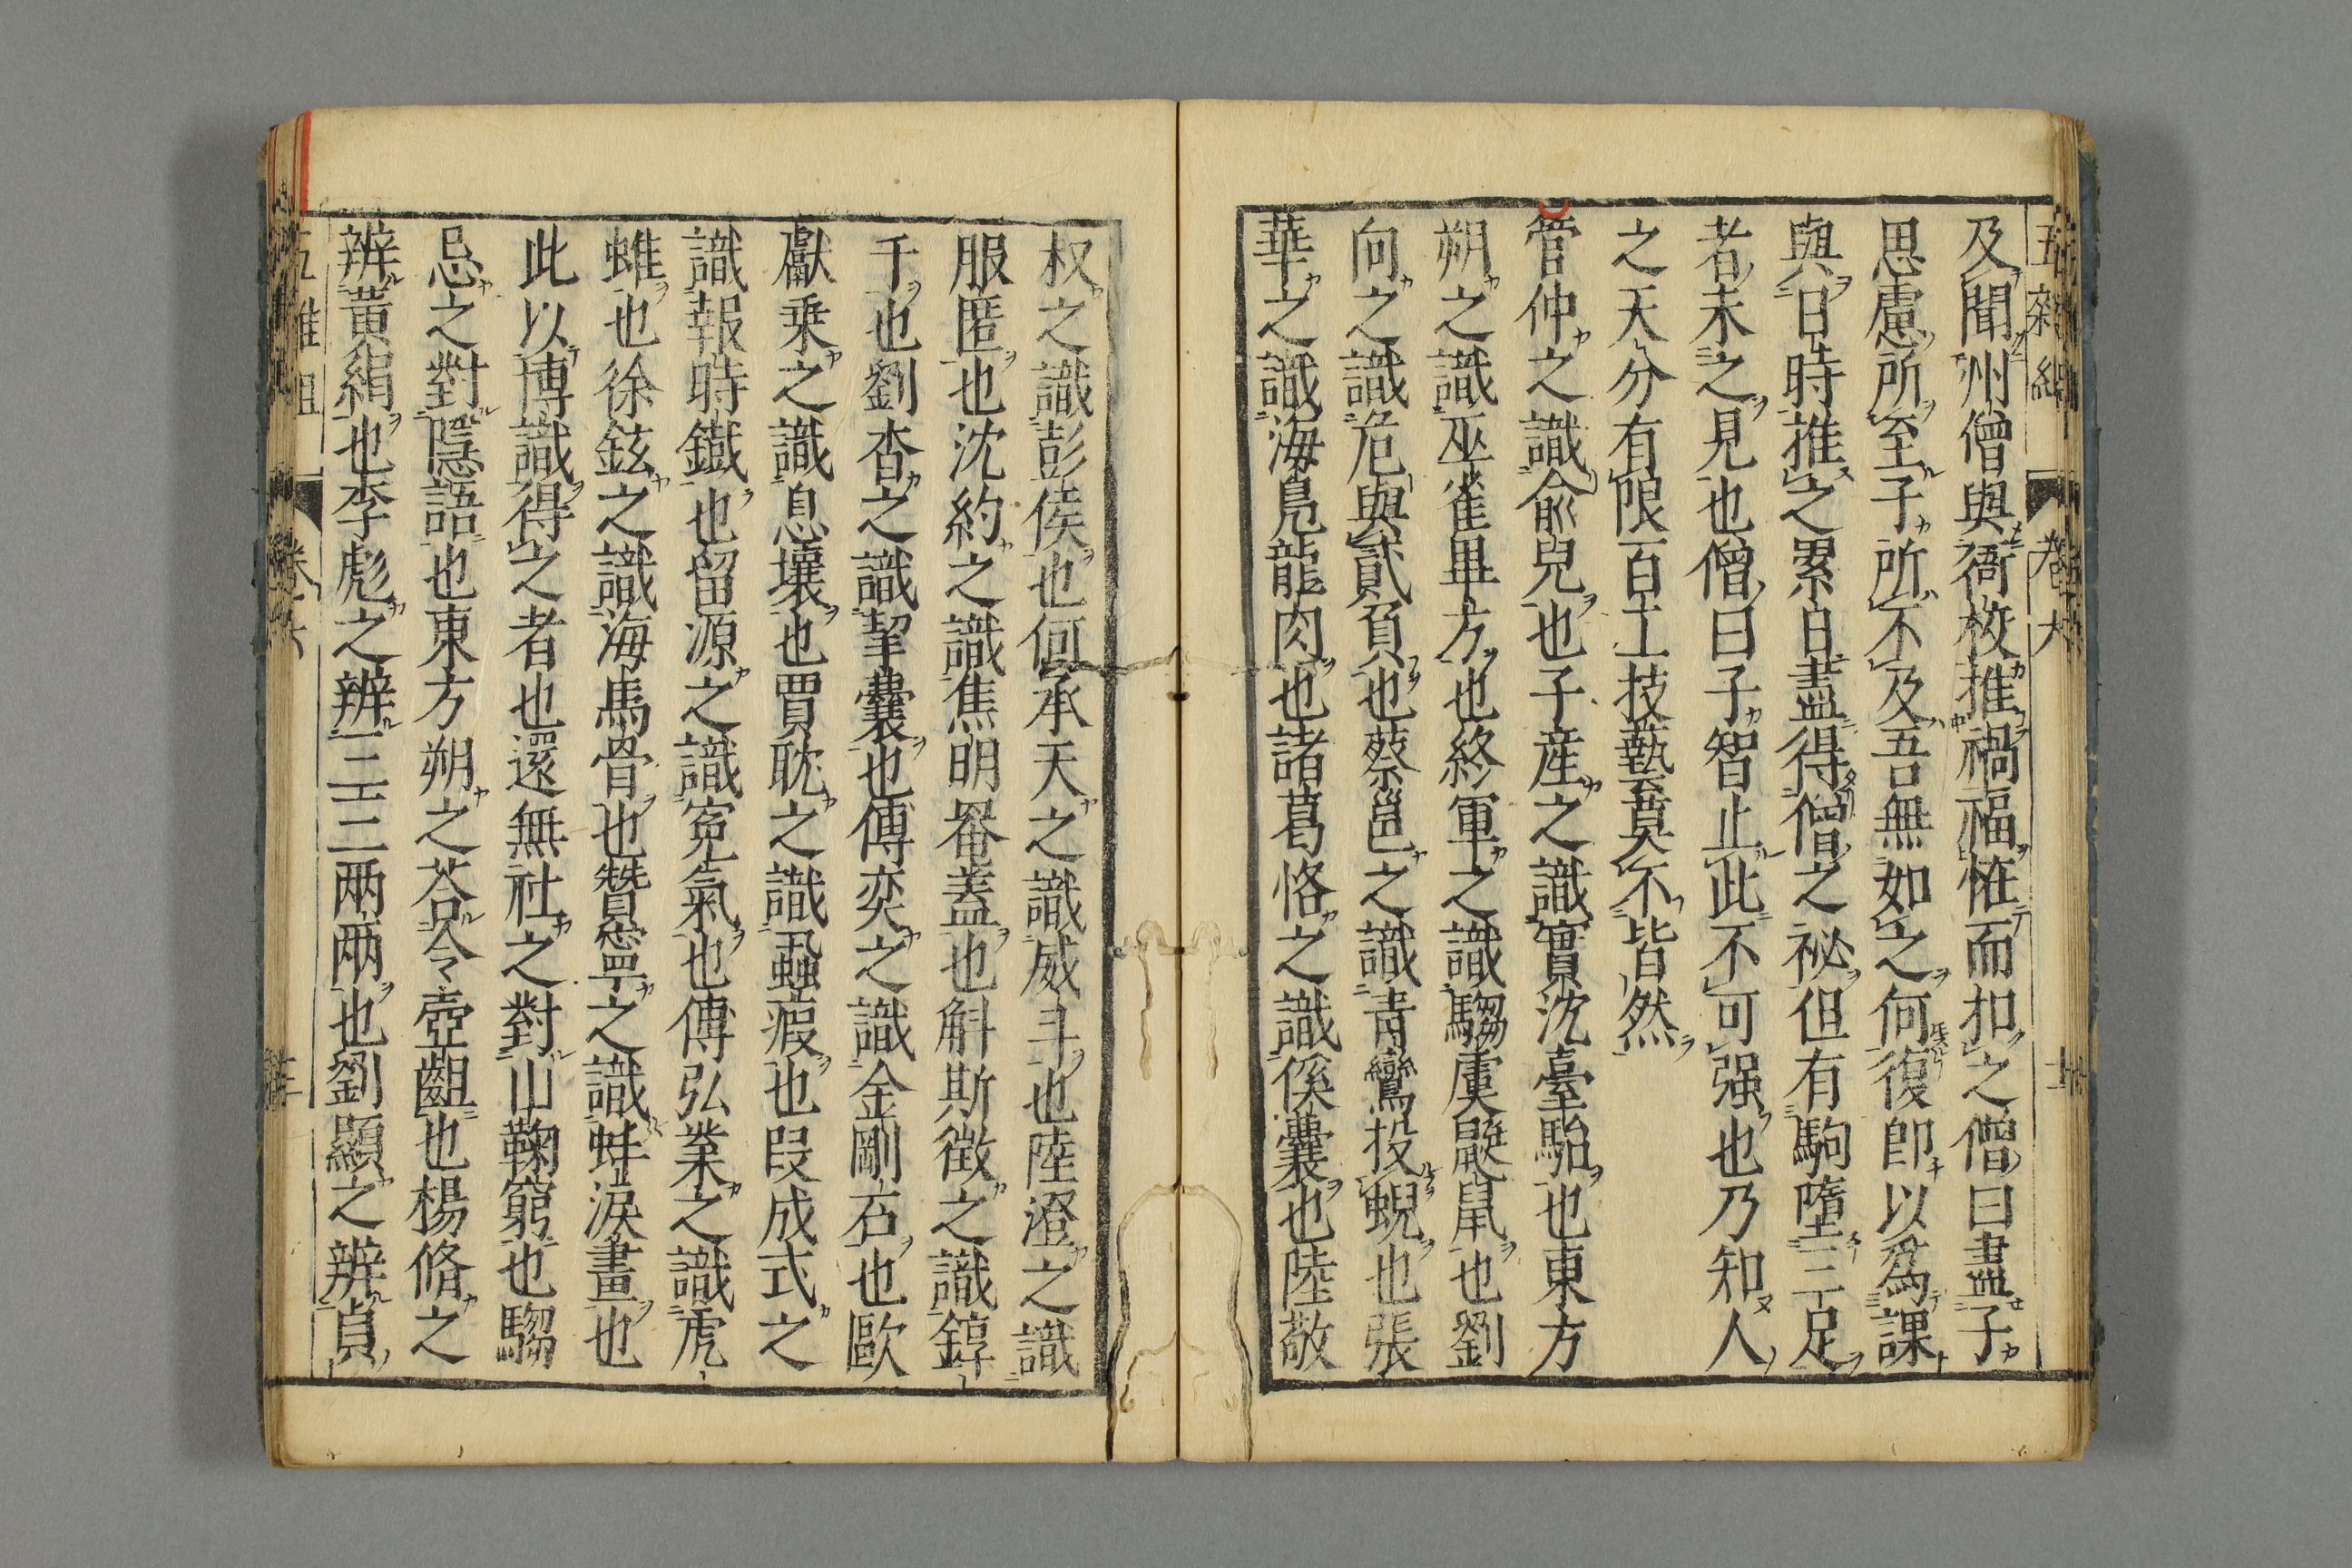 五雜組 卷六
及聞州僧與衙校推禍福恠而扣之僧曰盡子
思慮所至子所不及吾無如之何復即以爲課
與日時推之累白盡得僧之祕但有駒墮三足
者未之見也僧曰子智止此不可强也乃知人
之天分有限百工技藝莫不皆然
管仲之識俞兒也子産之識實沈臺駘也東方
朔之識巫雀畢方也終軍之識騶虞鼮鼠也劉
向之識危與貳負也蔡邕之識靑鸞投蜺也張
華之識海鳧龍肉也諸葛恪之識傒囊也陸敬
权之識彭侯也何承天之識威斗也陸澄之識
服匿也沈約之識焦明罨蓋也斛斯徵之識錞
千也劉杳之識挈囊也傅奕之識金剛石也歐
獻乗之識息壤也賈耽之識蝨瘕也段成式之
識報時鐵也留源之識寃氣也傅弘業之識虎
蜼也徐鉉之識海馬骨也贊寧之識蚌淚畫也
此以博識得之者也還無社之對山鞠窮也騶
忌之對隱語也東方朔之荅令壺齟也楊脩之
辨黃絹也李彪之辨三三兩兩也劉顯之辨貞
五雜組 卷六